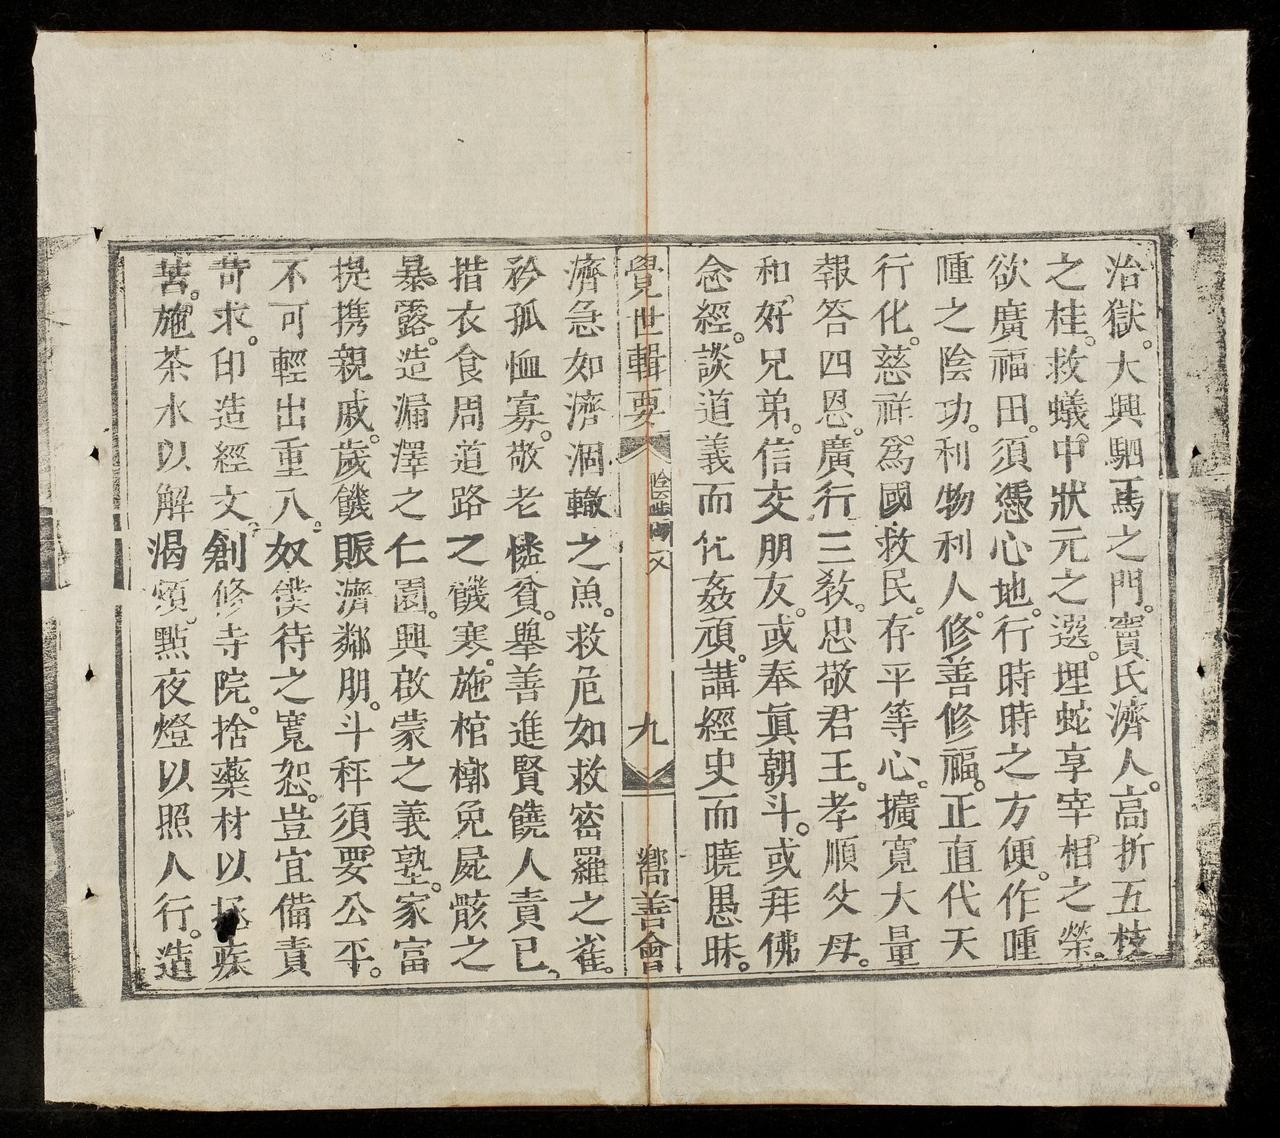 治獄。大興駟馬之門。竇氏濟人。高折五枝
之桂。救蟻。中狀元之選。埋蛇享宰相之榮。
欲廣福田。須憑心地。行時時之方便。作種
種之陰功。利物利人。修善修福。正直代天
行化。慈祥。爲國救民。存平等心。擴寬大量
報答四恩。廣行三敎。忠敬君王。孝順父母。
和好兄弟。信交朋友。或奉眞朝斗。或拜佛
念經。談道義而化姦頑。講經史而曉愚昧。
覺世輯要 陰騭文 九 嚮善會
濟急如濟涸轍之魚。救危如救密羅之雀。
矜孤恤寡。敬老憐貧。舉善進賢饒人責已、
措衣食周道路之饑寒。施棺槨免屍骸之
暴露。造漏澤之仁園。興啟蒙之義塾。家富
提携親戚。歲饑賑濟鄰朋。斗秤須要公平。
不可輕出重入。奴僕待之寬恕。豈宜備責
苛求。印造經文。創修寺院。捨藥材以拯疾
苦。施茶水以解渴煩。點夜燈以照人行。造